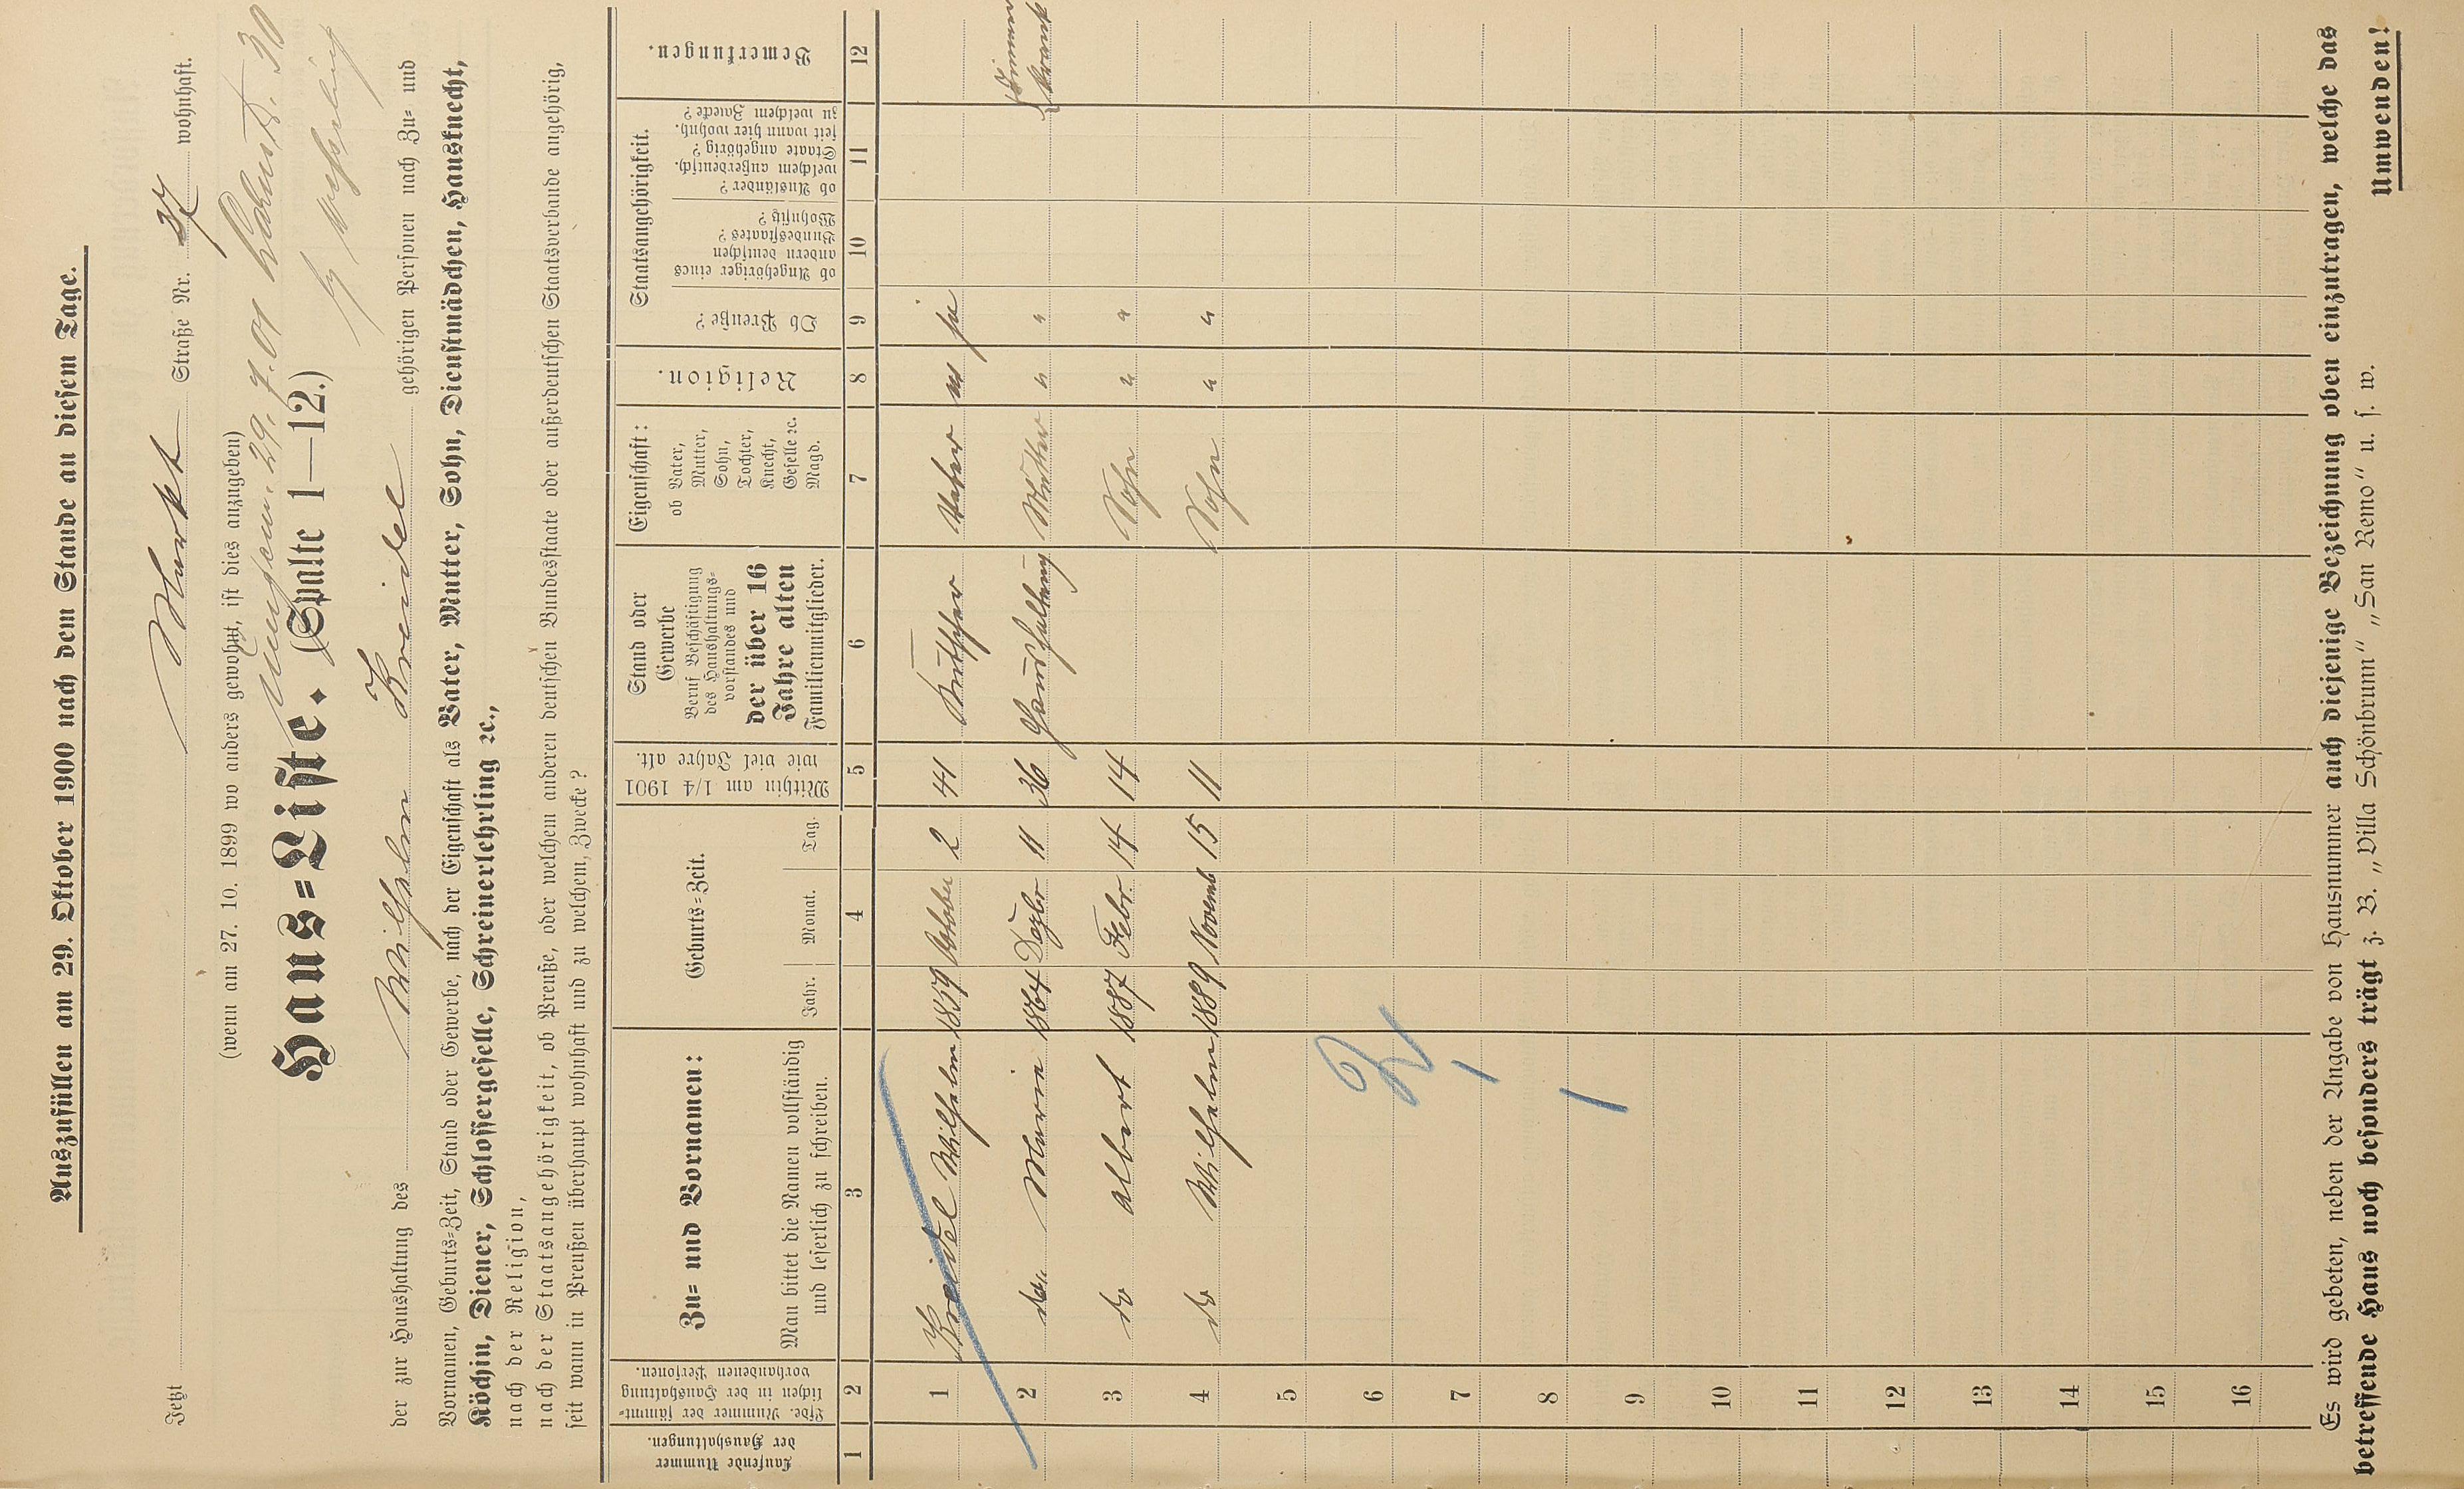 Auszufüllen am 29. Oktober 1900 nach dem Stande an diesem Tage.
Jetzt Markt Straße Nr. 37 wohnhaft.
(wenn am 27. 10. 1899 wo anders gewohnt, ist dies anzugeben)
29. 7. 01 30
Haus=Liste. (Spalte 1—12.)
der zur Haushaltung des Wilhelm Kreidel gehörigen Personen nach Zu= und
Vornamen, Geburts=Zeit, Stand oder Gewerbe, nach der Eigenschaft als Vater, Mutter, Sohn, Dienstmädchen, Hausknecht,
Köchin, Diener, Schlossergeselle, Schreinerlehrling ꝛc.,
nach der Religion,
nach der Staatsangehörigkeit, ob Preuße, oder welchem anderen deutschen Bundesstaate oder außerdeutschen Staatsverbande angehörig,
seit wann in Preußen überhaupt wohnhaft und zu welchem, Zwecke?
Laufende Nummer der Haushaltungen.
Lfde. Nummer der sämmt=lichen in der Haushaltung vorhandenen Personen.
Zu= und Vornamen:
Man bittet die Namen vollständig
und leserlich zu schreiben.
Geburts=Zeit.
Jahr. Monat. Tag.
Mithin am 1/4 1901 wie viel Jahre alt.
Stand oder
Gewerbe
Beruf Beschäftigung
des Haushaltungs=
vorstandes und
der über 16
Jahre alten
Familienmitglieder.
Eigenschaft:
ob Vater,
Mutter,
Sohn,
Tochter,
Knecht,
Geselle ꝛc.
Magd.
Religion.
Staatsangehörigkeit.
Ob Preuße?
ob Angehöriger eines
andern deutschen
Bundesstaates?
Wohnsitz?
ob Ausländer?
welchem außerdeutsch.
Staate angehörig?
seit wann hier wohnh.
zu welchem Zwecke?
Bemerkungen.
1 2 3 4 5 6 7 8 9 10 11 12
1 Kreidel Wilhelm 1859 October 2 41 Kutscher Vater ja
2 do. Marie 1864 Dezbr 11 36 Haushaltung Mutter " "
3 do Albert 1887 Febr. 14 14 Sohn " "
4 do Wilhelm 1889 Novemb 15 11 Sohn " "
5
6
7
8
9
10
11
12
13
14
15
16
Es wird gebeten, neben der Angabe von Hausnummer auch diejenige Bezeichnung oben einzutragen, welche das
betreffende Haus noch besonders trägt z. B. „Villa Schönbrunn" „San Remo" u. s. w.
Umwenden!